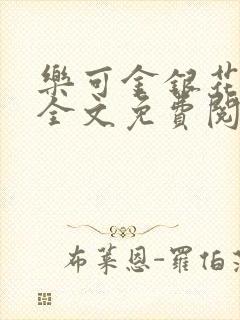 樂可金銀花
全文免費閱
布萊恩-羅伯